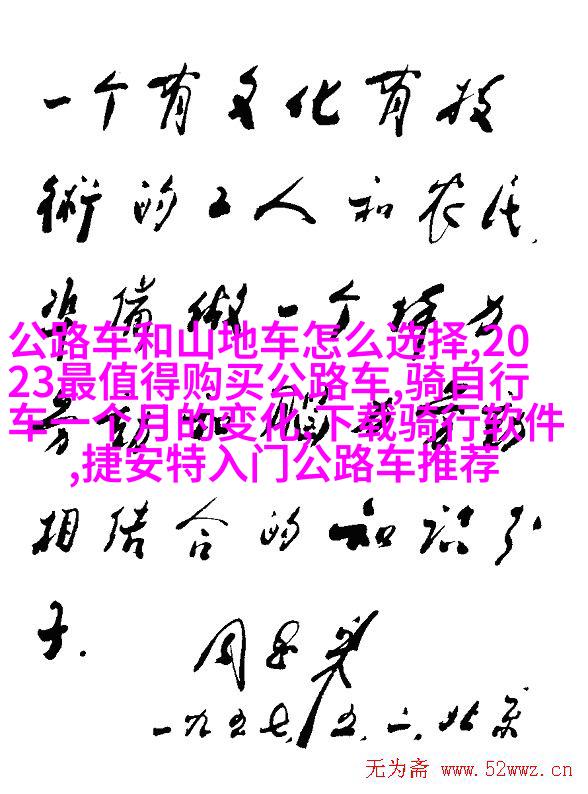 一个有文化有技
術的工人和农民,
備做一个体力
公路车和山地车怎么选择,20
23最值得购买公路车,骑自行
车一个月的变化,下载骑行软件
,捷安特入门公路车推荐
相结合的知识分
子.
周恩来
一九五七,五,二,北京
无为斋 www.52wwz.cn